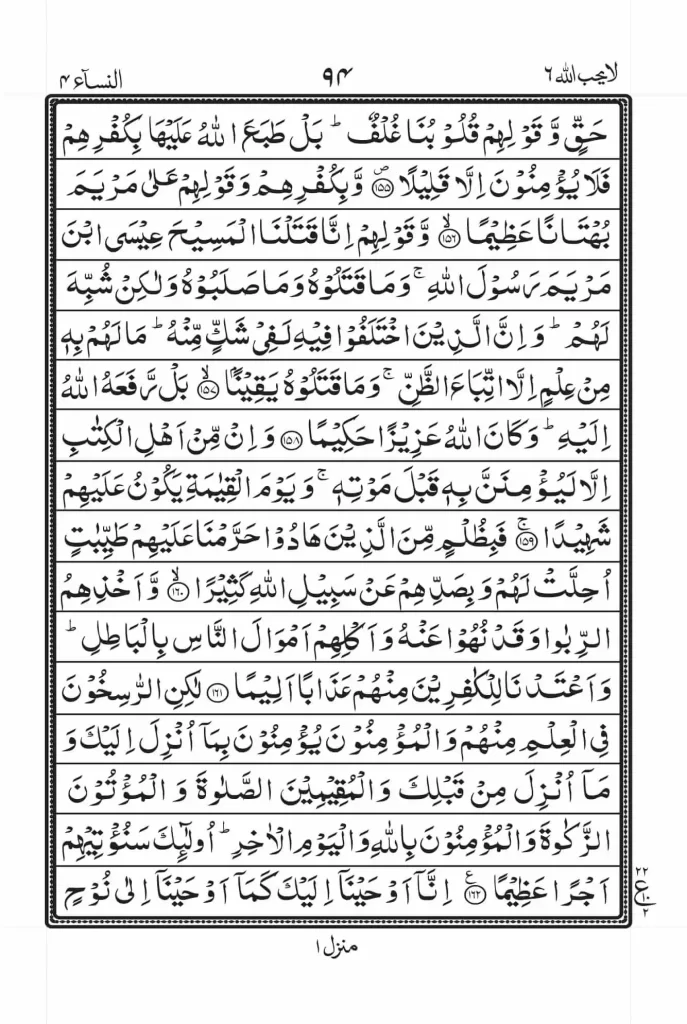 لا یحب اللہ ۶
۹۴
النسآء ۴
حَقٍّ وَّقَوْلِهِمْ قُلُوْبُنَا غُلْفٌ ؕ بَلْ طَبَعَ اللّٰهُ عَلَيْهَا بِكُفْرِهِمْ
فَلَا يُؤْمِنُوْنَ اِلَّا قَلِيْلًا ۪﴿۱۵۵﴾ وَّبِكُفْرِهِمْ وَقَوْلِهِمْ عَلٰى مَرْيَمَ
بُهْتَانًا عَظِيْمًا ۙ﴿۱۵۶﴾ وَّقَوْلِهِمْ اِنَّا قَتَلْنَا الْمَسِيْحَ عِيْسَى ابْنَ
مَرْيَمَ رَسُوْلَ اللّٰهِ ۚ وَمَا قَتَلُوْهُ وَمَا صَلَبُوْهُ وَلٰكِنْ شُبِّهَ
لَهُمْ ؕ وَاِنَّ الَّذِيْنَ اخْتَلَفُوْا فِيْهِ لَفِيْ شَكٍّ مِّنْهُ ؕ مَا لَهُمْ بِهٖ
مِنْ عِلْمٍ اِلَّا اتِّبَاعَ الظَّنِّ ۚ وَمَا قَتَلُوْهُ يَقِيْنًۢا ۙ﴿۱۵۷﴾ بَلْ رَّفَعَهُ اللّٰهُ
اِلَيْهِ ؕ وَكَانَ اللّٰهُ عَزِيْزًا حَكِيْمًا ﴿۱۵۸﴾ وَاِنْ مِّنْ اَهْلِ الْكِتٰبِ
اِلَّا لَيُؤْمِنَنَّ بِهٖ قَبْلَ مَوْتِهٖ ۚ وَيَوْمَ الْقِيٰمَةِ يَكُوْنُ عَلَيْهِمْ
شَهِيْدًا ۚ﴿۱۵۹﴾ فَبِظُلْمٍ مِّنَ الَّذِيْنَ هَادُوْا حَرَّمْنَا عَلَيْهِمْ طَيِّبٰتٍ
اُحِلَّتْ لَهُمْ وَبِصَدِّهِمْ عَنْ سَبِيْلِ اللّٰهِ كَثِيْرًا ۙ﴿۱۶۰﴾ وَّاَخْذِهِمُ
الرِّبٰوا وَقَدْ نُهُوْا عَنْهُ وَاَكْلِهِمْ اَمْوَالَ النَّاسِ بِالْبَاطِلِ ؕ
وَاَعْتَدْنَا لِلْكٰفِرِيْنَ مِنْهُمْ عَذَابًا اَلِيْمًا ﴿۱۶۱﴾ لٰكِنِ الرّٰسِخُوْنَ
فِي الْعِلْمِ مِنْهُمْ وَالْمُؤْمِنُوْنَ يُؤْمِنُوْنَ بِمَاۤ اُنْزِلَ اِلَيْكَ وَ
مَاۤ اُنْزِلَ مِنْ قَبْلِكَ وَالْمُقِيْمِيْنَ الصَّلٰوةَ وَالْمُؤْتُوْنَ
الزَّكٰوةَ وَالْمُؤْمِنُوْنَ بِاللّٰهِ وَالْيَوْمِ الْاٰخِرِ ؕ اُولٰٓئِكَ سَنُؤْتِيْهِمْ
اَجْرًا عَظِيْمًا ﴿۱۶۲﴾ع اِنَّاۤ اَوْحَيْنَاۤ اِلَيْكَ كَمَاۤ اَوْحَيْنَاۤ اِلٰى نُوْحٍ
۲۲
ع ۱۰
۲
منزل ۱